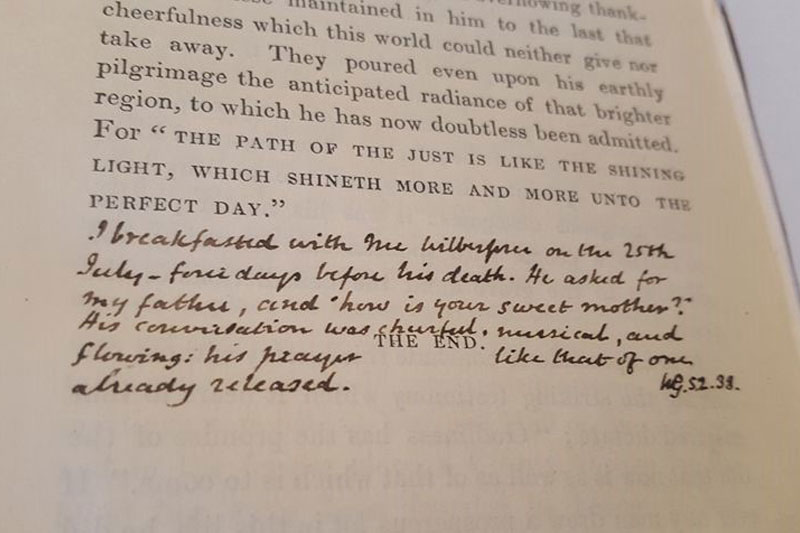 maintained in him to the last that
cheerfulness which this world could neither give nor
take away. They poured even upon his earthly
pilgrimage the anticipated radiance of that brighter
region, to which he has now doubtless been admitted.
For “THE PATH OF THE JUST IS LIKE THE SHINING
LIGHT, WHICH SHINETH MORE AND MORE UNTO THE
PERFECT DAY.”
I breakfasted with Mr Wilberforce on the 25th
July – four days before his death. He asked for
my father, and ‘how is your sweet mother?’
His conversation was cheerful, musical, and
THE END.
flowing: his prayer like that of one
already released.
WG.